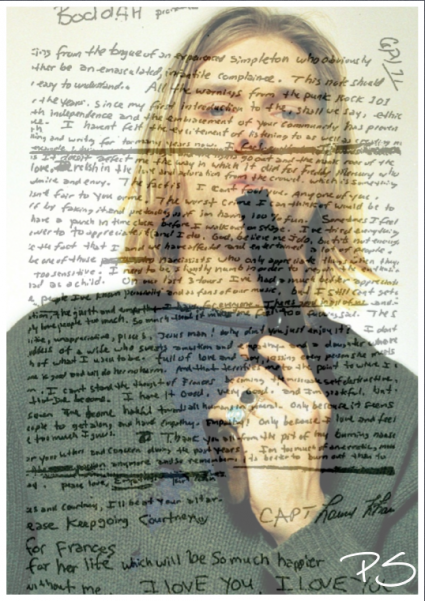 BoddAH
ing from the tongue of an experienced simpleton who obviously
ther be an emasculated, infantile complaine. This note should
easy to understand. All the warnings from the punk Rock 101
the years. Since my first introduction to the, shall we say, ethic
th independence and the embracement of your community has proven
I havent felt the excitement of listening to as well as creating
and writing for years now. I
go out and the roar of the
the way in which it did for Freddy Mercury who
love, relish in the love and adoration from the crowd. which is something
admire and envy. The fact is I cant you. Anyone of you.
isnt fair to you The worst crime I can think of would be to
by faking it and pretending as if im having 100% fun. Sometimes I feel
have a punch in time clock before I walk on stage. I've tried everything
power to appreciate it and I do, God, believe me I do, but it's not enough.
the fact that I have affected and entertained a lot of people.
be one of those narcissists who only appreciate things when they
Too sensitive. I need to be slightly numb in order
had as a child. On our last 3 tours I've had a much better appreciation
people I've known personally and as fans of our music, but I still cant get
the guilt and empathy I have for everyone. There's good in
ly love people too much. So much that it makes me feel too fucking sad. The
like, unappreciative, pisces, Jesus man! why dont you just enjoy it? I dont
goddess of a wife who sweats ambition and empathy and a daughter who
h of what I used to be. full of love and joy, kissing every person she meets
is good and will do her no harm. And that terrifies me to the point to where I
I can't stand the thought of Frances becoming the miserable self destructive,
that I've become. I have it Good, very Good, and I'm grateful, but
seven I've become hateful towards all humans in general. Only because it seems
people to get along and have empathy. Only because I love and feel
too much I guess. Thank you all from the pit of my burning nauseous
for your letters and concern during the past years. I'm too much of an erratic, moody
anymore and so remember, its better to burn out than to
peace, love, Empathy.
Frances and Courtney, I'll be at your altar.
ease Keep going Courtney
CAPT
for Frances
for her life which will be so much happier
without me. I LOVE YOU. I LOVE YOU
PS